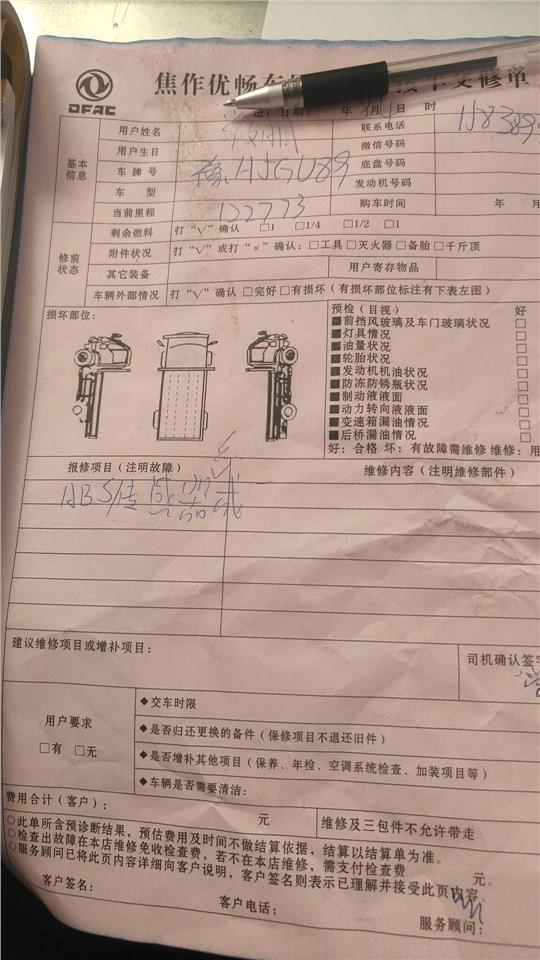 DFAC
焦作优畅车 接车交修单
进厂日期： 年 3月4日 时
用户姓名 联系电话
用户生日 微信号码
基本信息 车牌号 豫HJGU89 底盘号码
车型 发动机号码
当前里程 122773 购车时间 年 月
剩余燃料 打“√”确认 □1 □1/4 □1/2 □1
修前状态 附件状况 打“√”或打“×”确认：□工具□灭火器□备胎□千斤顶
其它装备 用户寄存物品
车辆外部情况 打“√”确认 □完好□有损坏（有损坏部位标注有下表左图）
损坏部位： 预检（目视） 好
■前挡风玻璃及车门玻璃状况 □
■灯具情况 □
■油量状况 □
■轮胎状况 □
■发动机机油状况 □
■防冻防锈瓶状况 □
■制动液液面 □
■动力转向液液面 □
■变速箱漏油情况 □
■后桥漏油情况 □
好：合格 坏：有故障需维修 维修：用
报修项目（注明故障） 维修内容（注明维修部件）
ABS传感器
建议维修项目或增补项目：
司机确认签字
◆交车时限
用户要求 ◆是否归还更换的备件（保修项目不退还旧件）
□有 □无 ◆是否增补其他项目（保养、年检、空调系统检查、加装项目等）
◆车辆是否需要清洁：
费用合计（客户）： 元 维修及三包件不允许带走
○此单所含预诊断结果，预估费用及时间不做结算依据，结算以结算单为准。
○检查出故障在本店维修免收检查费，若不在本店维修，需支付检查费 元。
○服务顾问已将此页内容详细向客户说明，客户签名则表示已理解并接受此页内容。
客户签名： 客户电话： 服务顾问：